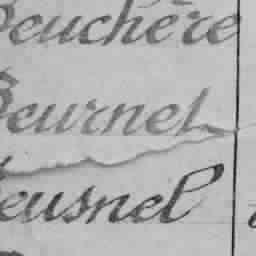 Beuchère
Beurnel
Beusnel